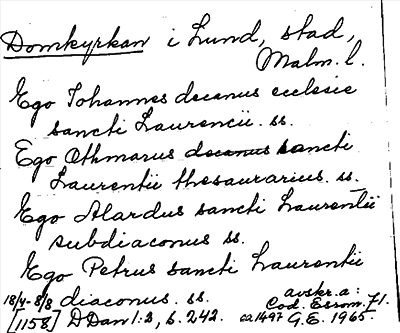 Domkyrkan i Lund, stad,
Malm. l.
Ego Johannes decanus ecclesie
sancti Laurencii. ss.
Ego Othmarus decanus sancti
Laurentii thesaurarius. ss.
Ego Alardus sancti Laurentii
subdiaconus ss.
Ego Petrus sancti Laurentii
diaconus. ss.
18/4-8/8 [1158] D Dan 1:2, s. 242.
avskr. a:
Cod. Esrom. f1.
ca 1497 G.E. 1965.